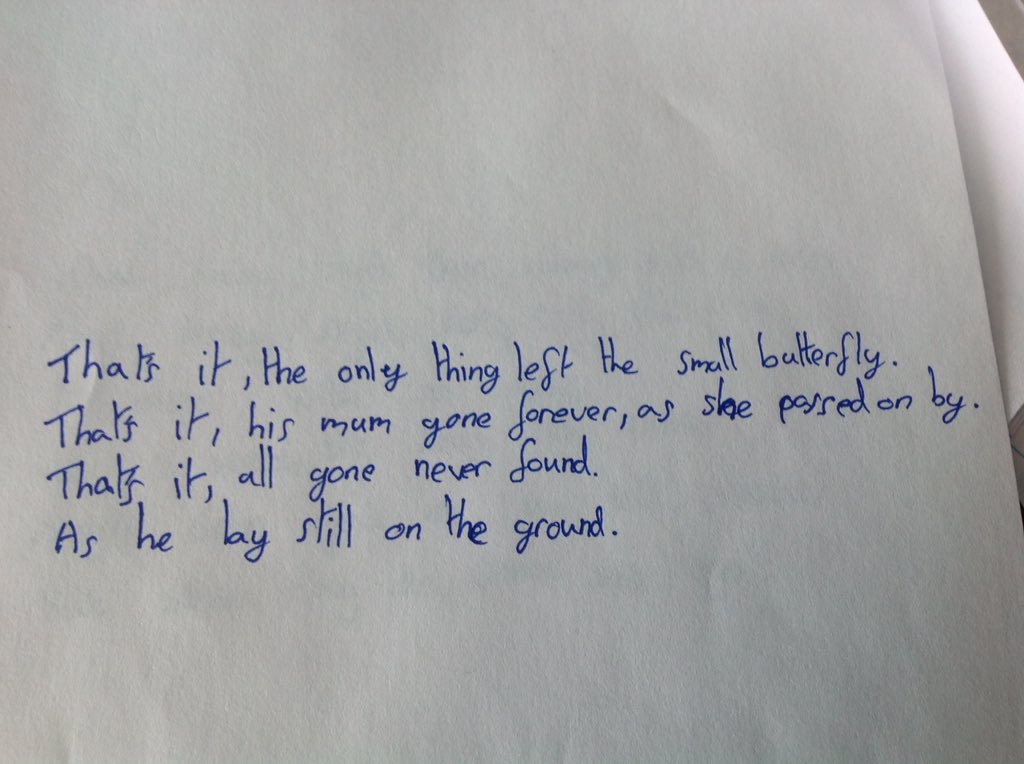 That's it, the only thing left the small butterfly.
That's it, his mum gone forever, as she passed on by.
That's it, all gone never found.
As he lay still on the ground.